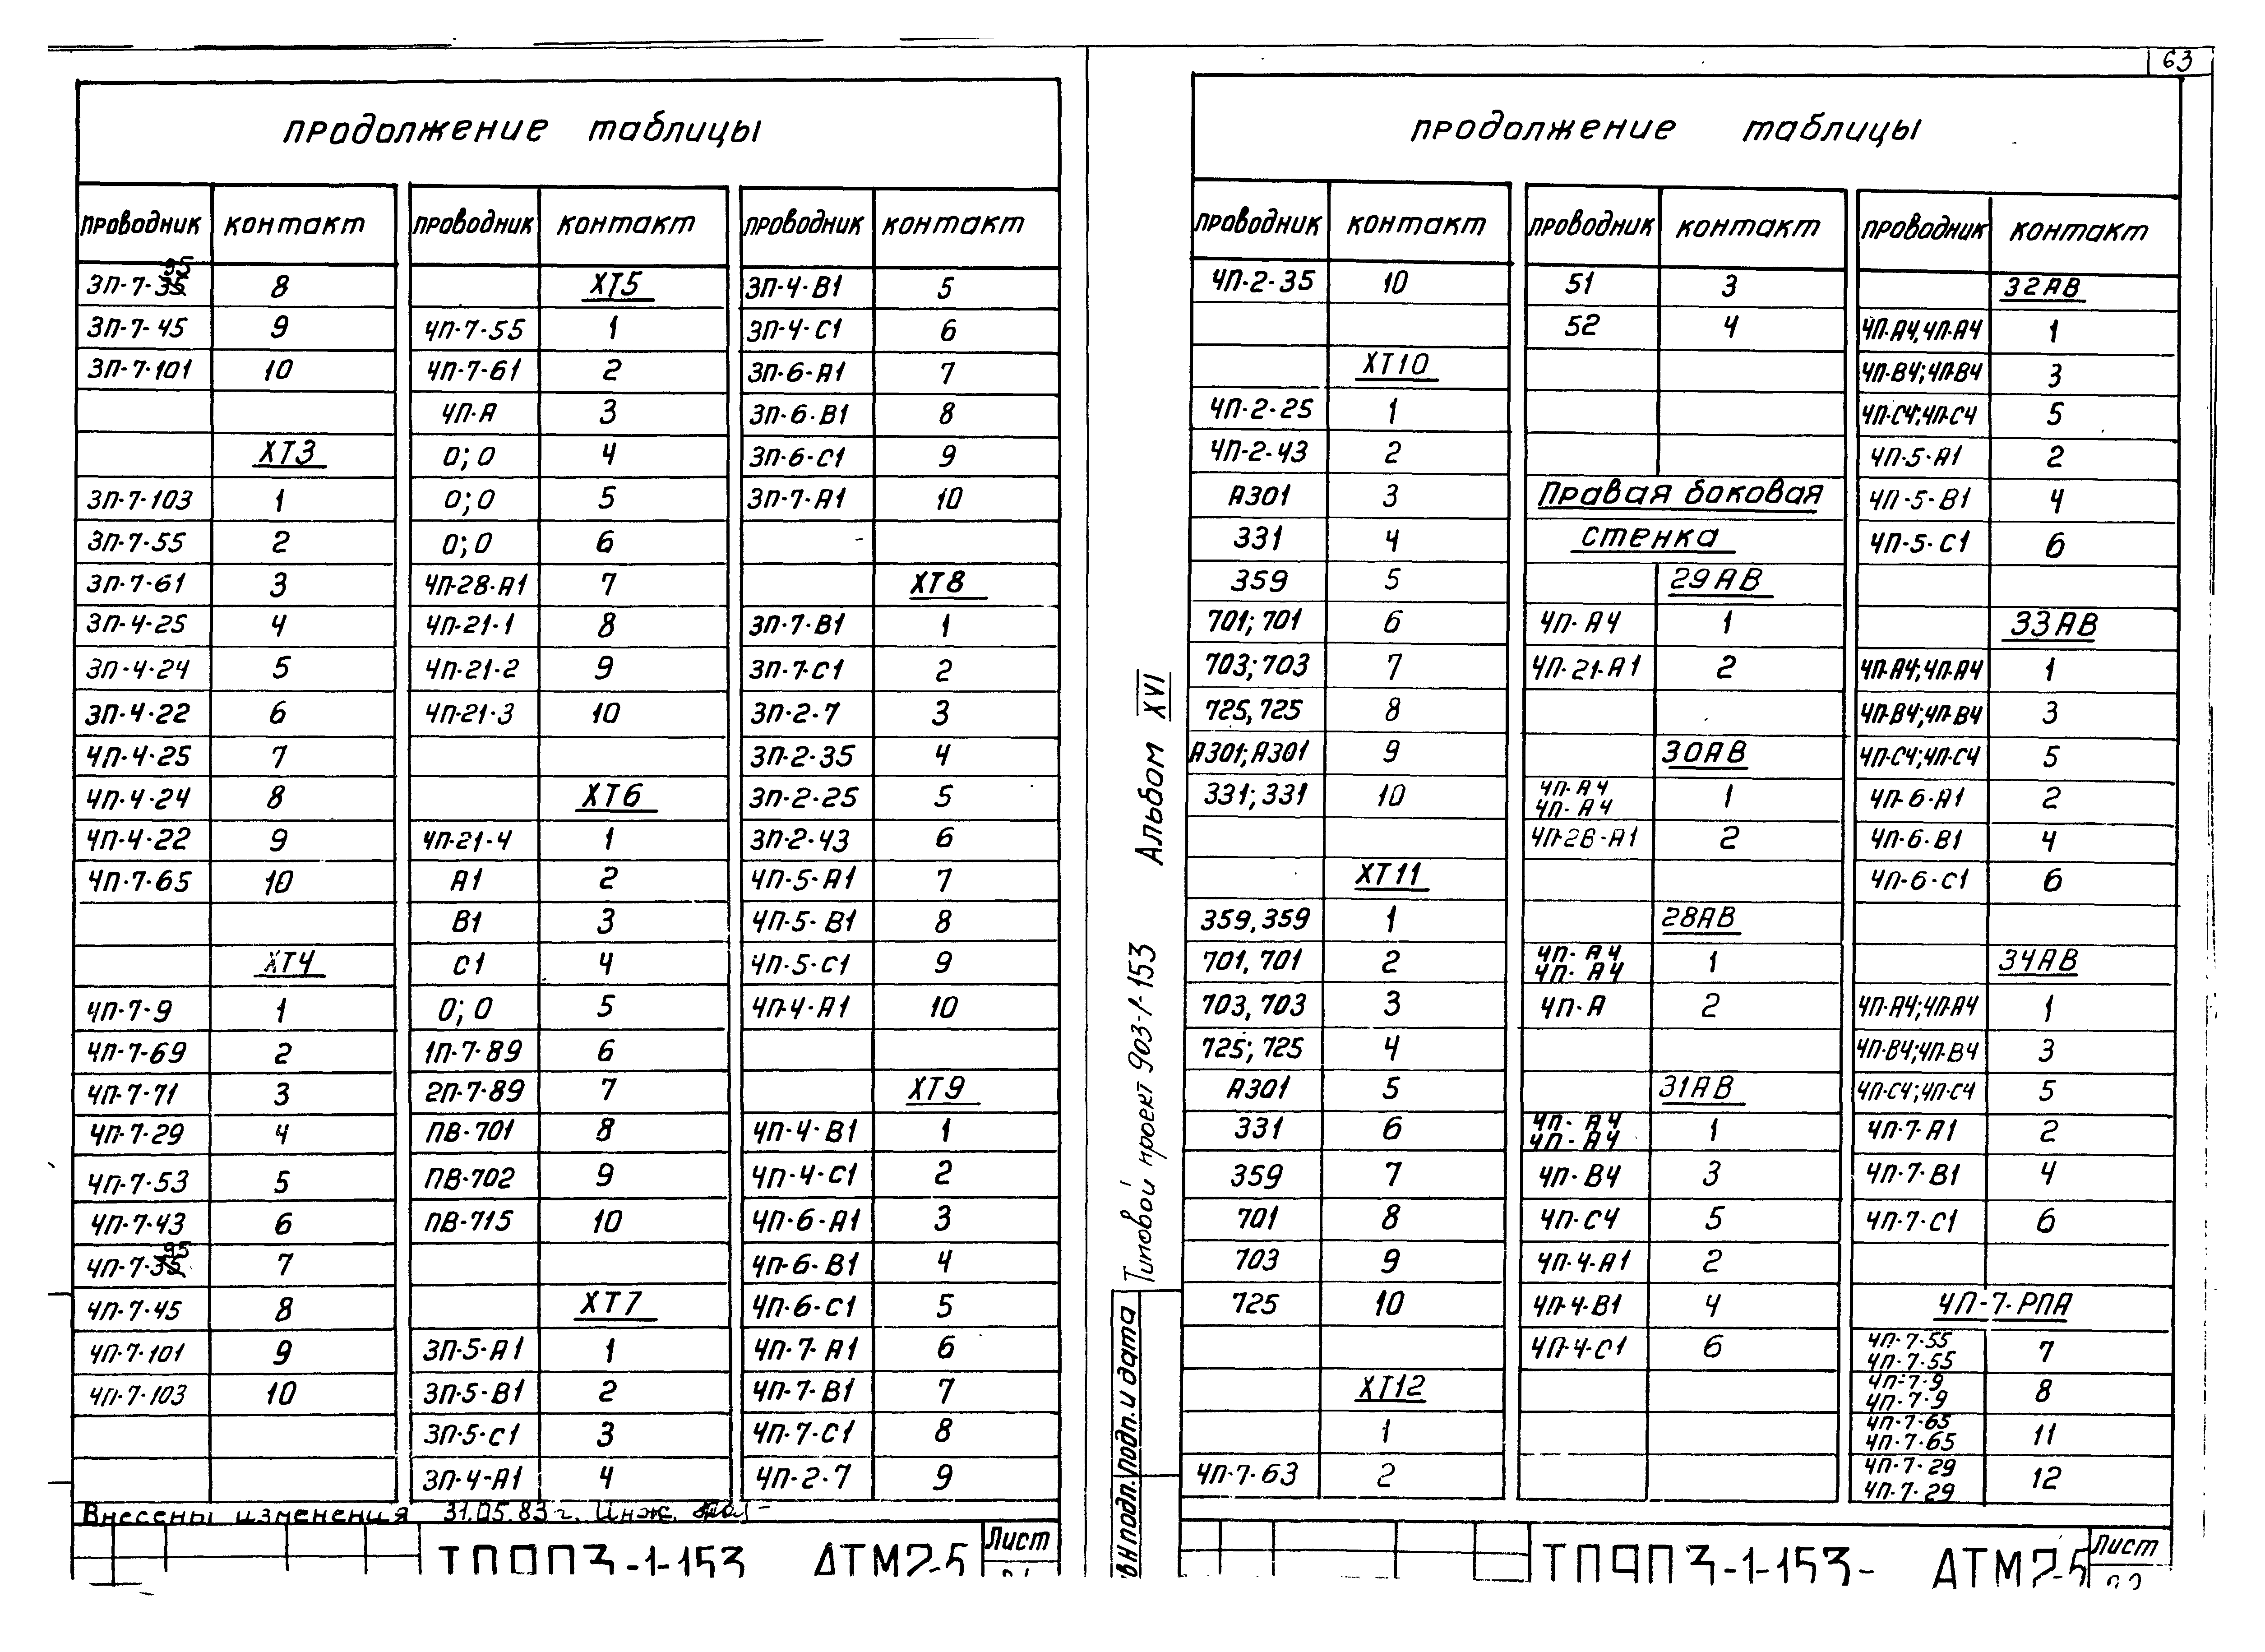 63
продолжение таблицы
проводник контакт
3П-7-95 8
3П-7-45 9
3П-7-101 10
ХТ3
3П-7-103 1
3П-7-55 2
3П-7-61 3
3П-4-25 4
3П-4-24 5
3П-4-22 6
4П-4-25 7
4П-4-24 8
4П-4-22 9
4П-7-65 10
ХТ4
4П-7-9 1
4П-7-69 2
4П-7-71 3
4П-7-29 4
4П-7-53 5
4П-7-43 6
4П-7-95 7
4П-7-45 8
4П-7-101 9
4П-7-103 10
проводник контакт
ХТ5
4П-7-55 1
4П-7-61 2
4П-А 3
0; 0 4
0; 0 5
0; 0 6
4П-28-А1 7
4П-21-1 8
4П-21-2 9
4П-21-3 10
ХТ6
4П-21-4 1
А1 2
В1 3
С1 4
0; 0 5
1П-7-89 6
2П-7-89 7
ПВ-701 8
ПВ-702 9
ПВ-715 10
ХТ7
3П-5-А1 1
3П-5-В1 2
3П-5-С1 3
3П-4-А1 4
проводник контакт
3П-4-В1 5
3П-4-С1 6
3П-6-А1 7
3П-6-В1 8
3П-6-С1 9
3П-7-А1 10
ХТ8
3П-7-В1 1
3П-7-С1 2
3П-2-7 3
3П-2-35 4
3П-2-25 5
3П-2-43 6
4П-5-А1 7
4П-5-В1 8
4П-5-С1 9
4П-4-А1 10
ХТ9
4П-4-В1 1
4П-4-С1 2
4П-6-А1 3
4П-6-В1 4
4П-6-С1 5
4П-7-А1 6
4П-7-В1 7
4П-7-С1 8
4П-2-7 9
Внесены изменения 31.05.83 г. Инж.
ТП903-1-153 АТМ2-5
Лист
Альбом XVI
Типовой проект 903-1-153
подп. и дата
подп.
продолжение таблицы
проводник контакт
4П-2-35 10
ХТ10
4П-2-25 1
4П-2-43 2
А301 3
331 4
359 5
701; 701 6
703; 703 7
725, 725 8
А301; А301 9
331; 331 10
ХТ11
359, 359 1
701, 701 2
703, 703 3
725; 725 4
А301 5
331 6
359 7
701 8
703 9
725 10
ХТ12
1
4П-7-63 2
проводник контакт
51 3
52 4
Правая боковая
стенка
29АВ
4П-А4 1
4П-21-А1 2
30АВ
4П-А4
4П-А4 1
4П-28-А1 2
28АВ
4П-А4
4П-А4 1
4П-А 2
31АВ
4П-А4
4П-А4 1
4П-В4 3
4П-С4 5
4П-4-А1 2
4П-4-В1 4
4П-4-С1 6
проводник контакт
32АВ
4П-А4, 4П-А4 1
4П-В4; 4П-В4 3
4П-С4; 4П-С4 5
4П-5-А1 2
4П-5-В1 4
4П-5-С1 6
33АВ
4П-А4; 4П-А4 1
4П-В4; 4П-В4 3
4П-С4; 4П-С4 5
4П-6-А1 2
4П-6-В1 4
4П-6-С1 6
34АВ
4П-А4; 4П-А4 1
4П-В4; 4П-В4 3
4П-С4; 4П-С4 5
4П-7-А1 2
4П-7-В1 4
4П-7-С1 6
4П-7-РПА
4П-7-55
4П-7-55 7
4П-7-9
4П-7-9 8
4П-7-65
4П-7-65 11
4П-7-29
4П-7-29 12
ТП903-1-153- АТМ2-5
Лист